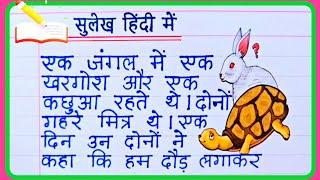 सुलेख हिंदी में
एक जंगल में एक
खरगोश और एक
कछुआ रहते थे।दोनों
गहरे मित्र थे।एक
दिन उन दोनों ने
कहा कि हम दौड़ लगाकर
?